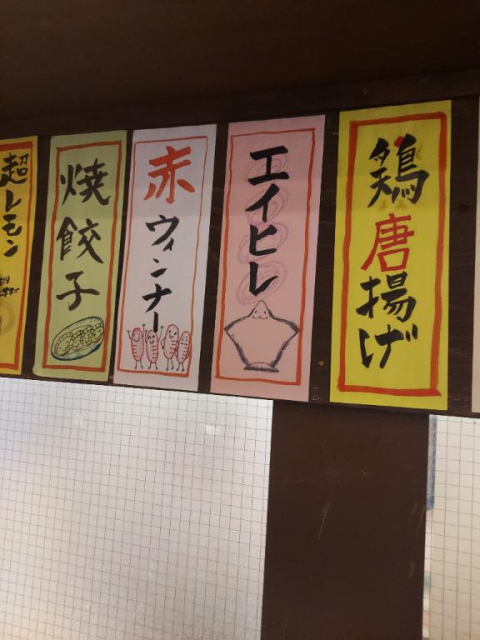 鶏唐揚げ
エイヒレ
赤ウィンナー
焼餃子
超レモン